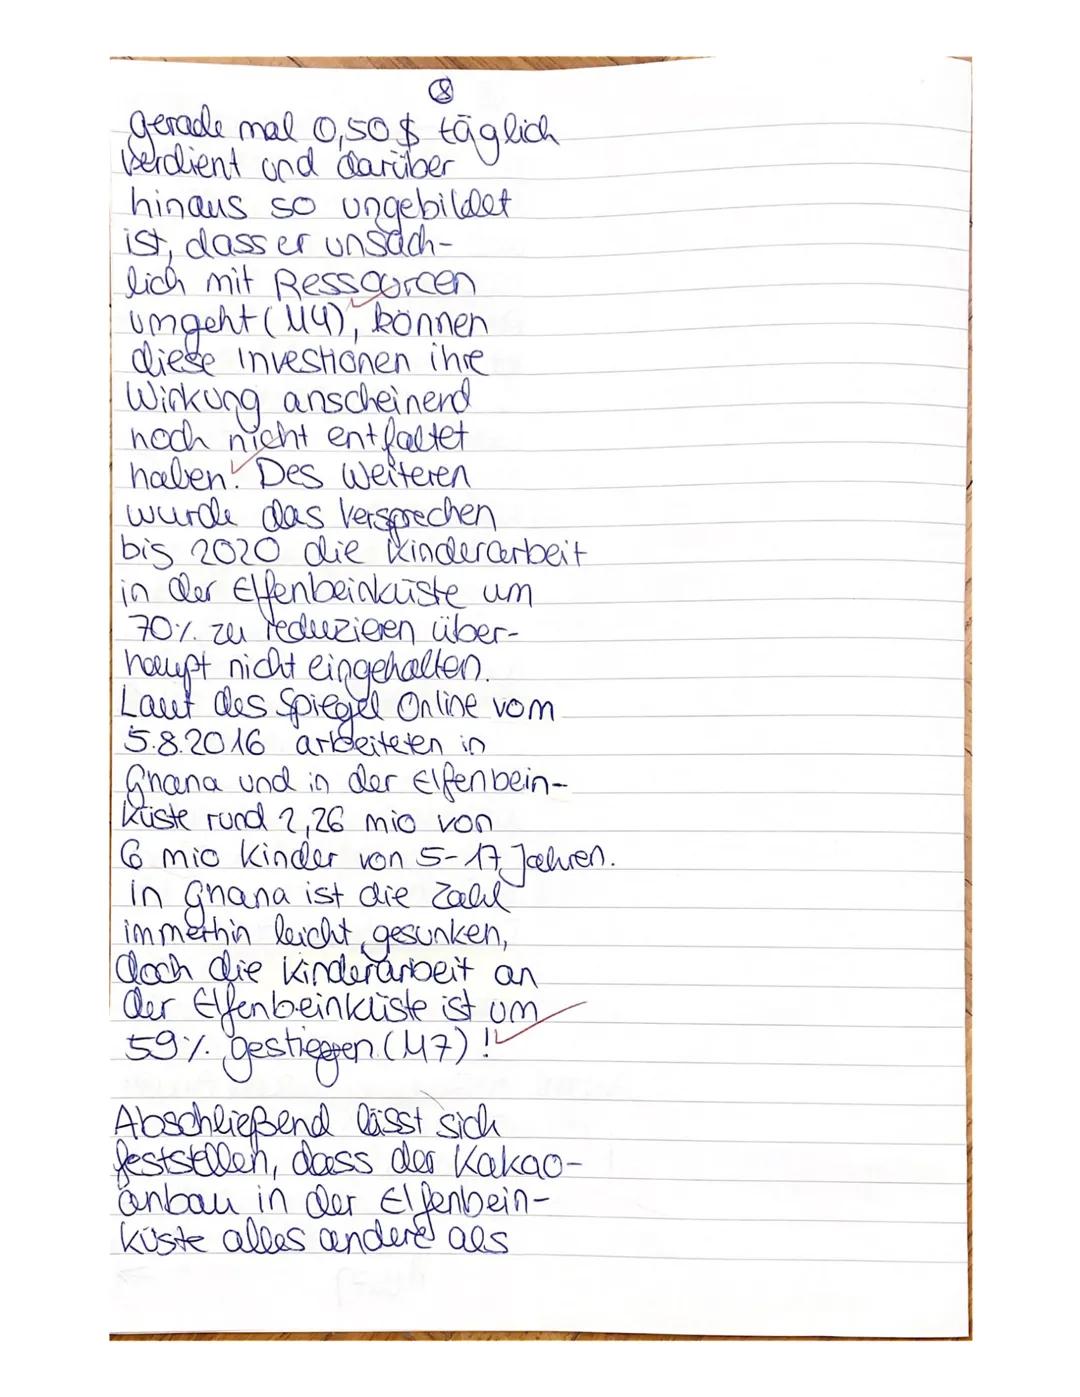 ⑧
gerade mal 0,50$ täglich
verdient und darüber
hinaus so ungebildet
ist, dass er unsach-
lich mit Ressourcen
umgeht (M4), können
diese Investionen ihre
Wirkung anscheinend
noch nicht entfaltet
haben. Des Weiteren
wurde das Versprechen
bis 2020 die Kinderarbeit
in der Elfenbeinküste um
70% zu reduzieren über-
haupt nicht eingehalten.
Laut des Spiegel Online vom
5.8.2016 arbeiteten in
Ghana und in der Elfenbein-
küste rund 2,26 mio von
6 mio Kinder von 5-17 Jahren.
in Ghana ist die Zahl
immerhin leicht gesunken,
doch die Kinderarbeit an
der Elfenbeinküste ist um
59% gestiegen (M7)!
Abschließend lässt sich
feststellen, dass der Kakao-
anbau in der Elfenbein-
küste alles andere als